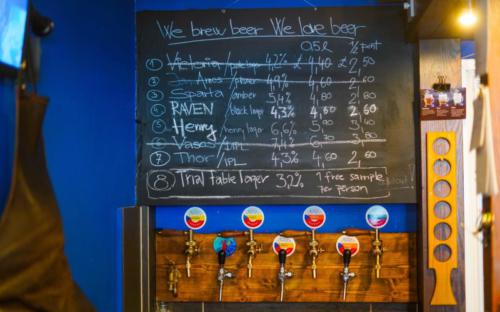 We brew beer We love beer
0,5l 1/2 pint
1 Victoria / 4,2% £ 4,40 £ 2,50
2 James / 4,9% 4,40 2,60
3 Sparta / amber 5,4% 4,80 2,80
4 RAVEN / black lager 4,3% 4,60 2,60
5 Henry / honey lager 6,6% 5,90 3,40
6 Vasas / DIPL 7,4% 6,70 3,80
7 Thor / IPL 4,3% 4,60 2,60
8 Trial table lager 3,2% 1 free sample
per person